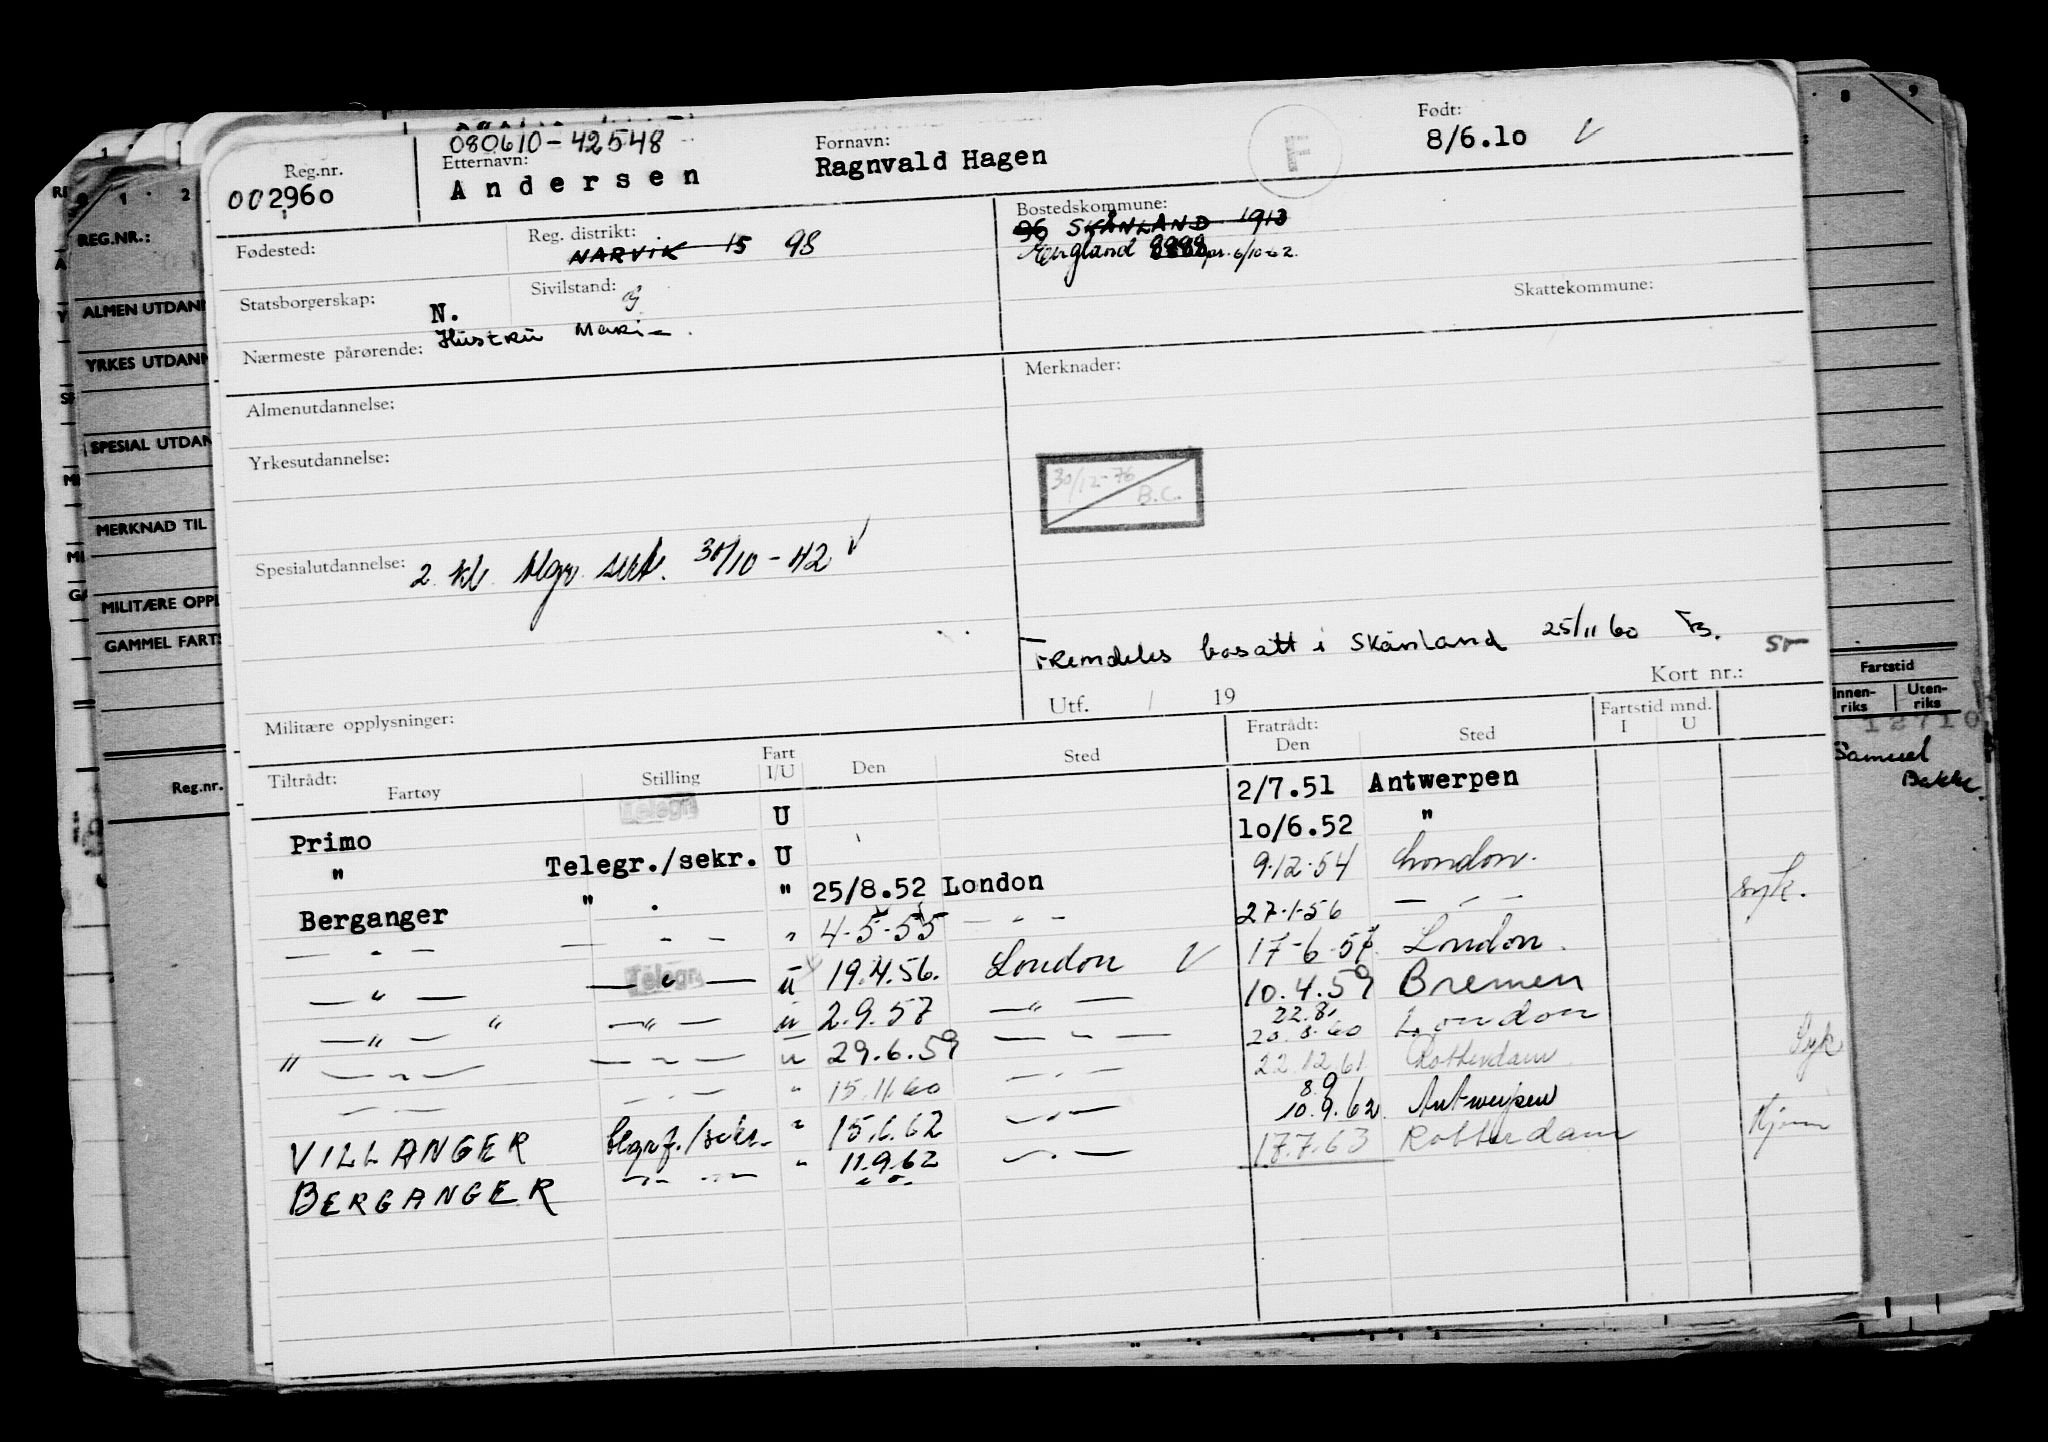 080610-42548
Reg.nr. Etternavn: Fornavn: Født:
002960 Andersen Ragnvald Hagen F 8/6.10 V
Fødested: Reg. distrikt: NARVIK 15 98
Bostedskommune: 96 SKÅNLAND 1913
England 8888 pr. 6/10-62.
Statsborgerskap: N. Sivilstand: g Skattekommune:
Nærmeste pårørende: Hustru Maria
Almenutdannelse: Merknader:
Yrkesutdannelse:
30/12-76 B.C.
Spesialutdannelse: 2. kl. tlgr. sert. 30/10-42 V
Fremdeles bosatt i Skånland 25/11 60 FB.
Sr
Militære opplysninger: Utf. / 19 Kort nr.:
Tiltrådt: Fratrådt: Fartstid mnd.
Fartøy Stilling Fart I/U Den Sted Den Sted I U
Primo Telegr. U 2/7.51 Antwerpen
" Telegr./sekr. U 10/6.52 "
Berganger " " 25/8.52 London 9.12.54 London.
— " — — " — " 4-5-55 — " — 27.1.56 — " — syk.
— " — Telegr. — " — u 19.4.56. London V 17-6-57. London.
— " — " — " — u 2.9.57 — " — 10.4.59 Bremen
" — " — — " — u 29.6.59 — " — 22.8. 20.8.60 London
— " — — " — " 15.11.60 — " — 22.12.61 Rotterdam Syk
VILLANGER tlgrf./sekr. " 15.6.62 — " — 8.9 10.9.62. Antwerpen
BERGANGER — " — " 11.9.62 — " — 17.7.63 Rotterdam Hjem
REG.NR.:
ALMEN UTDANN
YRKES UTDANN
SPESIAL UTDAN
MERKNAD TIL
MILITÆRE OPPL
GAMMEL FARTS
Reg.nr.
Fartstid
Innen-riks Uten-riks
Samuel
Bakke.